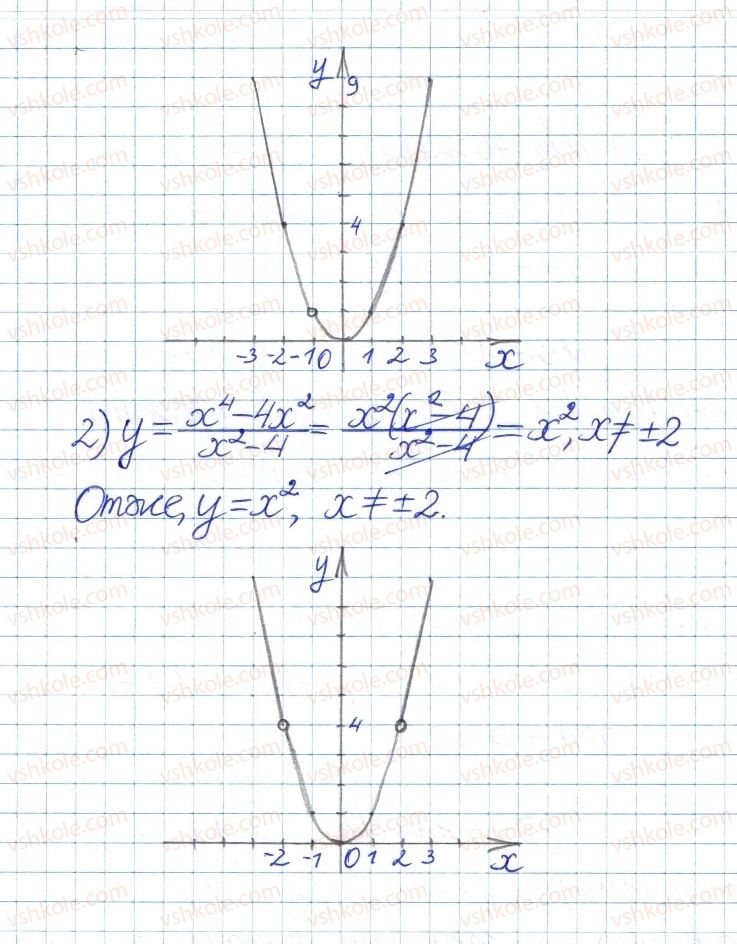 y
9
4
-3 -2 -1 0 1 2 3 x
2) y = \frac{x^4-4x^2}{x^2-4} = \frac{x^2(x^2-4)}{x^2-4} = x^2, x≠±2
Отже, y=x^2, x≠±2.
y
4
-2 -1 0 1 2 3 x
vshkole.com